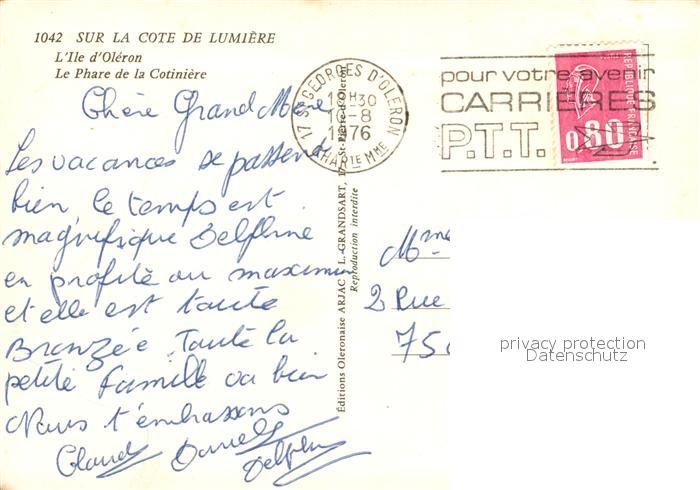 1042 SUR LA COTE DE LUMIÈRE
L'Ile d'Oléron
Le Phare de la Cotinière
Chère Grand Mère
Les vacances se passent
bien le temps est
magnifique Delphine
en profite au maximum
et elle est toute
Bronzée Toute la
petite famille va bien
Nous t'embrassons
Claude Daniel Delphine
Éditions Oleronaise ARJAC - L. GRANDSART, 17 - St-Pierre-d'Oléron
Reproduction interdite
17 ST GEORGES D'OLERON
1 H30
10-8
1976
CHARTE MME
pour votre avenir
CARRIÈRES
P.T.T.
REPUBLIQUE FRANÇAISE
0,80
Mme
2 Rue
750
privacy protection
Datenschutz